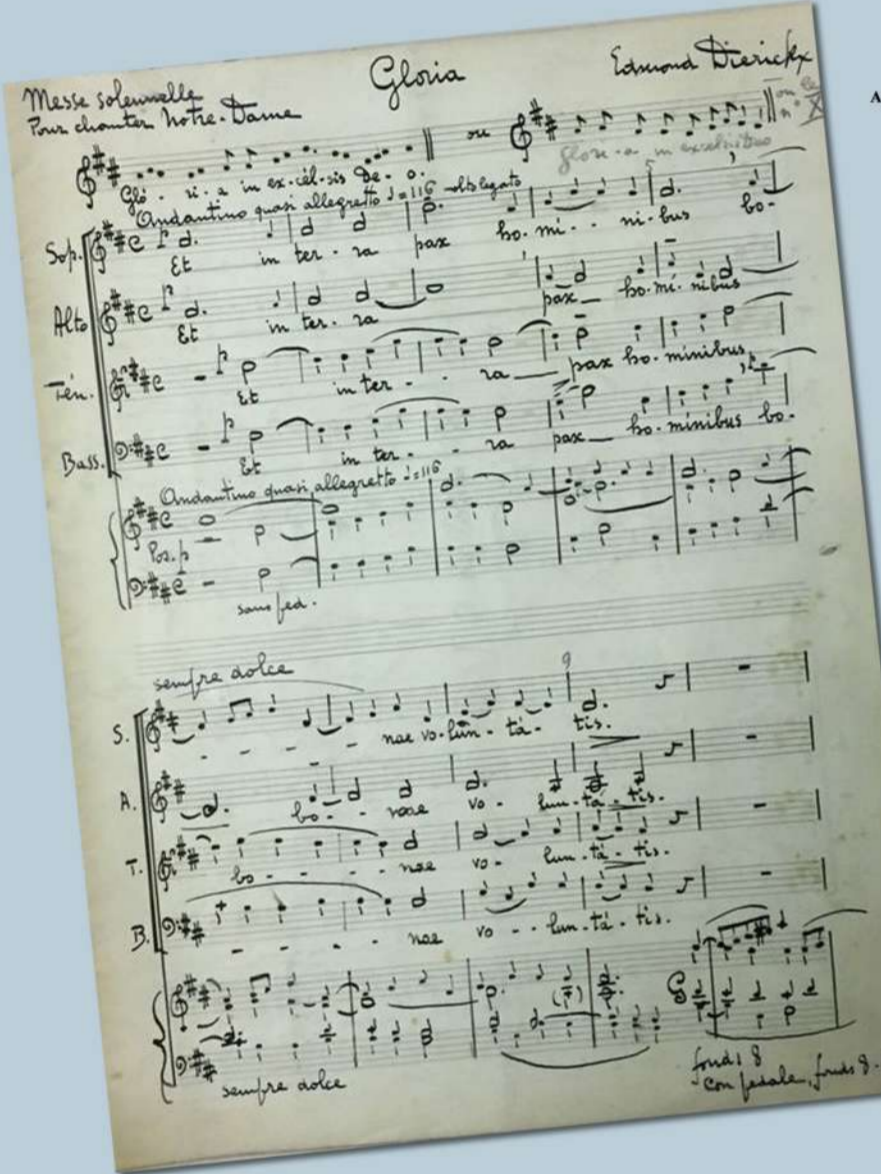 Gloria
Edmond Dierickx
Messe solennelle
Pour chanter Notre-Dame
A
ou
ou le
n° X
Gló - ri - a in ex - cél - sis De - o.
Glori - a in excelsis Deo
Andantino quasi allegretto ♩=116 molto legato
Sop.
Et in ter - ra pax ho - mi - ni - bus bo -
5
Alto
Et in ter - ra pax ho - mí - nibus
Tén.
Et in ter - ra pax ho - mínibus
Bass.
Et in ter - ra pax ho - mínibus bo -
Andantino quasi allegretto ♩=116
Pos. p
sans ped.
sempre dolce
9
S.
- nae vo - lun - tá - tis.
A.
bo - nae vo - lun - tá - tis.
T.
bo - nae vo - lun - tá - tis.
B.
- nae vo - lun - tá - tis.
sempre dolce
fonds 8
con pedale, fonds 8.